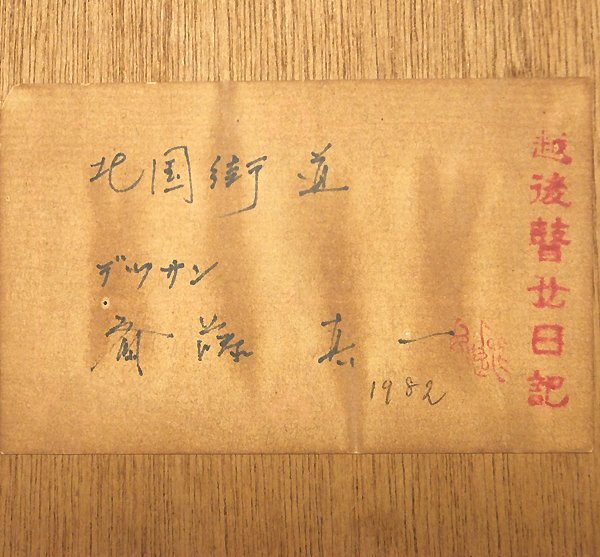 北国街道
デッサン
斎藤真一
1982
越後瞽女日記